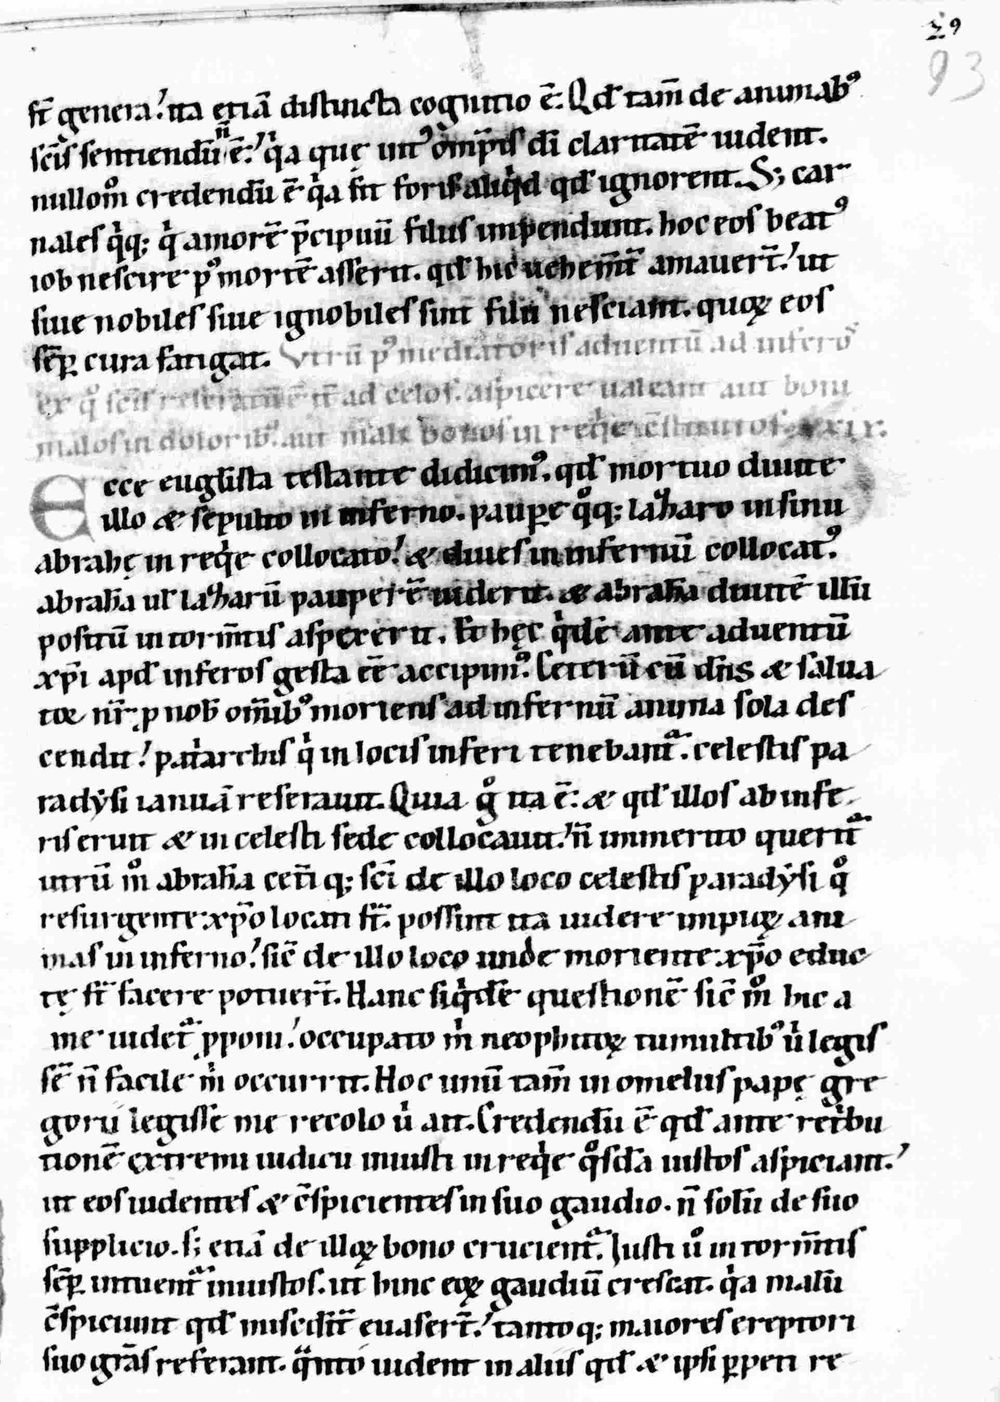 29
93
st̄ genera! ita etiā distincta cognitio ē. Qd̄ tam̄ de animab᾽
sc̄is sentiendū n̄ ē! q̇a quę int᾽ om̄ptīs dī claritatē uident.
nullom̊ credendū ē q̇a sit foris aliq̇d qd̄ ignorent. S; car
nales q̇q; q̇ amorē p̄cipuū filiis impendunt. hoc eos beat᾽
iob nescire p᾽ mortē asserit. qd̄ hic uehem̄t᷑ amauert̄! ut
siue nobiles siue ignobiles sint filii nesciant. quoꝝ eos
sēꝑ cura fatigat. Vtrū p᾽ mediatoris aduentū ad infero᾽
ex q̊ sc̄is reseratū ē it̄ ad celos. aspicere ualeant aut boni
malos in dolorib᾽. aut mali bonos in req̇e c̄stitutos. xxii.
Ecce euḡlista testante didicim᾽. qd̄ mortuo diuite
illo & sepulto in inferno. pauꝑe q̊q; lazaro in sinu
abrahę in req̇e collocato! & diues in infernū collocat᾽.
abrahā ul̄ lazarū pauperē uiderit. & abrahā diuitē illū
positū in torm̄tis aspexerit. Et hęc q̇dē ante aduentū
xp̄i apd̄ inferos gesta eē accipim᾽. Ceterū cū dn̄s & salua
tor nr̄ ꝓ nob̄ om̄ib᾽ moriens ad infernū anima sola des
cendit! pat̄archis q̇ in locis inferi tenebant᷑. celestis pa
radẏsi ianuā reserauit. Quia g̊ ita ē. & qd̄ illos ab infe
ris eruit & in celesti sede collocauit! n̄ immerito querit᷑
utrū m̊ abrahā cet̄iq; sc̄i de illo loco celestis paradẏsi q̊
resurgente xp̄o locati st̄. possint ita uidere impioꝝ ani
mas in inferno! sic̄ de illo loco unde moriente xp̄o educ
tę st̄ facere potuert̄. Hanc siq̇dē questionē sic̄ m̊ hic a
me uidet᷑ ꝓponi! occupato ṁ neophitoꝝ tumultib᾽ u̇ legis
sē n̄ facile ṁ occurrit. Hoc unū tam̄ in omeliis papę gre
gorii legisse me recolo u̇ ait. Credendū ē qd̄ ante retribu
tionē extremi iudicii iniusti in req̇e q̊sdā iustos aspiciant!
ut eos uidentes & c̄spicientes in suo gaudio. n̄ solū de suo
supplicio. s; etiā de illoꝝ bono crucient᷑. Justi u̇o in torm̄tis
sēꝑ intuent᷑ iniustos. ut hinc eoꝝ gaudiū crescat. q̇a malū
c̄spiciunt qd̄ mis̄cdit᷑ euasert̄! tantoq; maiores ereptori
suo gr̄as referant. q̈nto uident in aliis qd̄ & ipsi ꝑpeti re